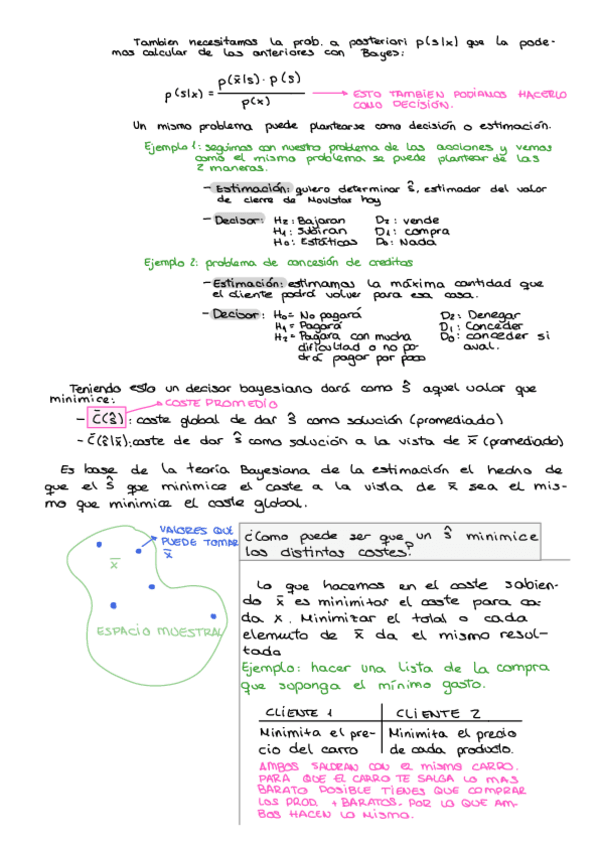 Tambien necesitamos la prob. a posteriori p(s|x) que la pode-
mos calcular de las anteriores con Bayes:
p(s|x) = p(x̄|s) · p(s) / p(x) → ESTO TAMBIEN PODÍAMOS HACERLO
COMO DECISIÓN.
Un mismo problema puede plantearse como decisión o estimación.
Ejemplo 1: seguimos con nuestro problema de las acciones y vemos
como el mismo problema se puede plantear de las
2 maneras.
- Estimación: quiero determinar ŝ, estimador del valor
de cierre de Movistar hoy
- Decisor: H2: Bajaran D2: vende
H1: Subiran D1: compra
H0: Estáticas D0: Nada
Ejemplo 2: problema de concesión de creditos
- Estimación: estimamos la máxima cantidad que
el cliente podrá volver para esa casa.
- Decisor: H0= No pagará D2: Denegar
H1= Pagará D1: Conceder
H2= Pagara con mucha D0: conceder si
dificultad o no po- aval.
drá pagar por poco
Teniendo esto un decisor bayesiano dará como ŝ aquel valor que
minimice: → COSTE PROMEDIO
- C̄(ŝ): coste global de dar ŝ como solución (promediado)
- C̄(ŝ|x̄): coste de dar ŝ como solución a la vista de x̄ (promediado)
Es base de la teoría Bayesiana de la estimación el hecho de
que el ŝ que minimice el coste a la vista de x̄ sea el mis-
mo que minimice el coste global.
VALORES QUE
PUEDE TOMAR
x̄
x̄
ESPACIO MUESTRAL
¿Como puede ser que un ŝ minimice
los distintos costes?
Lo que hacemos en el coste sabien-
do x̄ es minimizar el coste para ca-
da x. Minimizar el total o cada
elemuto de x̄ da el mismo resul-
tado
Ejemplo: hacer una lista de la compra
que suponga el mínimo gasto.
CLIENTE 1 CLIENTE 2
Minimita el pre- Minimita el precio
cio del carro de cada producto.
AMBOS SALDRAN CON EL MISMO CARRO.
PARA QUE EL CARRO TE SALGA LO MAS
BARATO POSIBLE TIENES QUE COMPRAR
LOS PROD. + BARATOS. POR LO QUE AM-
BOS HACEN LO MISMO.